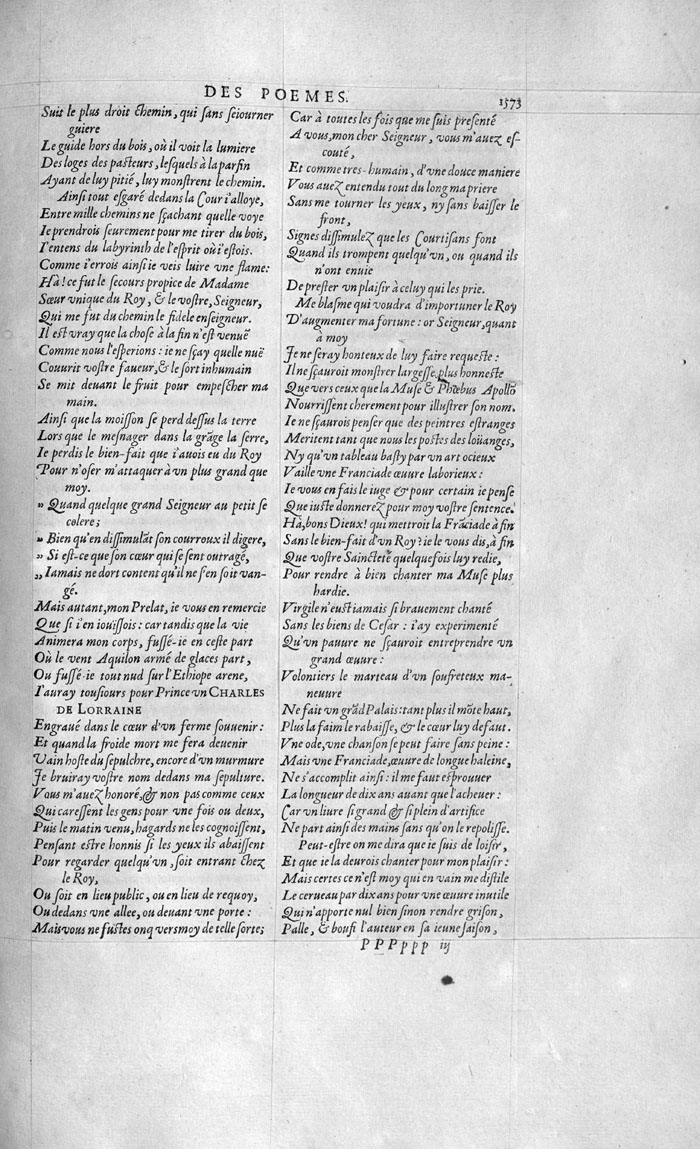 DES POEMES. 1573
Suit le plus droit chemin, qui sans seiourner
guiere
Le guide hors du bois, où il voit la lumiere
Des loges des pasteurs, lesquels à la parfin
Ayant de luy pitié, luy monstrent le chemin.
Ainsi tout esgaré dedans la Cour i'alloye,
Entre mille chemins ne sçachant quelle voye
Ie prendrois seurement pour me tirer du bois,
I'entens du labyrinth de l'esprit où i'estois.
Comme i'errois ainsi ie veis luire vne flame:
Hà! ce fut le secours propice de Madame
Sœur vnique du Roy, & le vostre, Seigneur,
Qui me fut du chemin le fidele enseigneur.
Il est vray que la chose à la fin n'est venuë
Comme nous l'esperions: ie ne sçay quelle nuë
Couurit vostre faueur, & le sort inhumain
Se mit deuant le fruit pour empescher ma
main.
Ainsi que la moisson se perd dessus la terre
Lors que le mesnager dans la grãge la serre,
Ie perdis le bien-fait que i'auois eu du Roy
Pour n'oser m'attaquer à vn plus grand que
moy.
» Quand quelque grand Seigneur au petit se
colere;
» Bien qu'en dissimulãt son courroux il digere,
» Si est-ce que son cœur qui se sent outragé,
„ Iamais ne dort content qu'il ne s'en soit van-
gé.
Mais autant, mon Prelat, ie vous en remercie
Que si i'en iouïssois: car tandis que la vie
Animera mon corps, fussé-ie en ceste part
Où le vent Aquilon armé de glaces part,
Ou fussé-ie tout nud sur l'Ethiope arene,
I'auray tousiours pour Prince vn CHARLES
DE LORRAINE
Engraué dans le cœur d'vn ferme souuenir:
Et quand la froide mort me fera deuenir
Vain hoste du sepulchre, encore d'vn murmure
Je bruiray vostre nom dedans ma sepulture.
Vous m'auez honoré, & non pas comme ceux
Qui caressent les gens pour vne fois ou deux,
Puis le matin venu, hagards ne les cognoissent,
Pensant estre honnis si les yeux ils abaissent
Pour regarder quelqu'vn, soit entrant chez
le Roy,
Ou soit en lieu public, ou en lieu de requoy,
Ou dedans vne allee, ou deuant vne porte:
Mais vous ne fustes onq vers moy de telle sorte;
Car à toutes les fois que me suis presenté
A vous, mon cher Seigneur, vous m'auez es-
couté,
Et comme tres-humain, d'vne douce maniere
Vous auez entendu tout du long ma priere
Sans me tourner les yeux, ny sans baisser le
front,
Signes dissimulez que les Courtisans font
Quand ils trompent quelqu'vn, ou quand ils
n'ont enuie
De prester vn plaisir à celuy qui les prie.
Me blasme qui voudra d'importuner le Roy
D'augmenter ma fortune: or Seigneur, quant
à moy
Je ne seray honteux de luy faire requeste:
Il ne sçauroit monstrer largesse plus honneste
Que vers ceux que la Muse & Phœbus Apollõ
Nourrissent cherement pour illustrer son nom.
Ie ne sçaurois penser que des peintres estranges
Meritent tant que nous les postes des loüanges,
Ny qu'vn tableau basty par vn art ocieux
Vaille vne Franciade œuure laborieux:
Ie vous en fais le iuge & pour certain ie pense
Que iuste donnerez pour moy vostre sentence.
Hà, bons Dieux! qui mettroit la Frãciade à fin
Sans le bien-fait d'vn Roy? ie le vous dis, à fin
Que vostre Saincteté quelquefois luy redie,
Pour rendre à bien chanter ma Muse plus
hardie.
Virgile n'eust iamais si brauement chanté
Sans les biens de Cesar: i'ay experimenté
Qu'vn pauure ne sçauroit entreprendre vn
grand œuure:
Volontiers le marteau d'vn souffreteux ma-
neuure
Ne fait vn grãd Palais: tant plus il mõte haut,
Plus la faim le rabaisse, & le cœur luy defaut.
Vne ode, vne chanson se peut faire sans peine:
Mais vne Franciade, œuure de longue haleine,
Ne s'accomplit ainsi: il me faut esprouuer
La longueur de dix ans auant que l'acheuer:
Car vn liure si grand & si plein d'artifice
Ne part ainsi des mains sans qu'on le repolisse.
Peut-estre on me dira que ie suis de loisir,
Et que ie la deurois chanter pour mon plaisir:
Mais certes ce n'est moy qui en vain me distile
Le cerueau par dix ans pour vne œuure inutile
Qui n'apporte nul bien sinon rendre grison,
Palle, & boufi l'auteur en sa ieune saison,
PPPppp iij